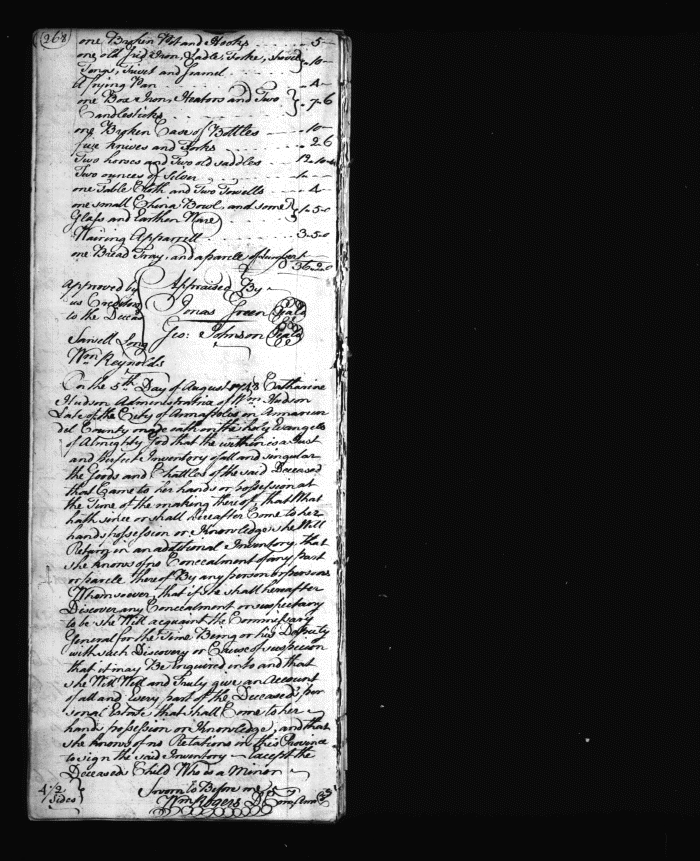 (268)
one Broken Pot and Hooks - 5 -
one old Grid Iron, Ladle, Forke, Shovel - 10 -
Tongs, Trivet and framel
A frying Pan - 4 -
one Box Iron, Heators and Two - 7.6
Candlesticks
one Broken Case of Bottles - 10 -
five knives and Forks - 2 6
Two horses and Two old saddles 12.10.
Two ounces of Silver
one Table Cloth and Two Towells - 4 -
one small China Bowl, and some 1.5.0
Glass and Earthen Ware
Wairing Apparrell 3.5.0
one Bread Tray, and a parcle of
36.2.0
Approved by Appraised By
us Creditors Jonas Green Seald
to the Deceas'd Geo: Johnson Seald
Long
Wm Reynolds
On the 5th Day of August 1748 Catharine
Hudson Administratrix of Wm Hudson
Late of the City of Annapolis in Annarun
del County made oath on the holy Evangels
of Almighty God that the within is a Just
and Perfect Inventory of all and singular
the Goods and Chattles of the said Deceased
that Came to her hands or possession at
the Time of the making thereof, that What
hath since or shall hereafter Come to her
hands possession or Knowledge she Will
Return in an additional Inventory, that
she knows of no Concealment of any part
or parcle thereof By any person or persons
Whomsoever, that if she shall hereafter
Discover any Concealment or suspect any
to be she Will acquaint the Commissary
General for the Time Being or his Deputy
with such Discovery or Cause of suspicion
that it may Be Enquired into and that
she Will Well and Truly give an Account
of all and Every part of the Deceased's per
sonal Estate that shall Come to her
hands possession or Knowledge, and that
she knows of no Relations in this Province
to sign the said Inventory Except the
Deceaseds Child Who is a Minor
4 1/2 Sworn to Before me
Sides Wm Rogers D Com